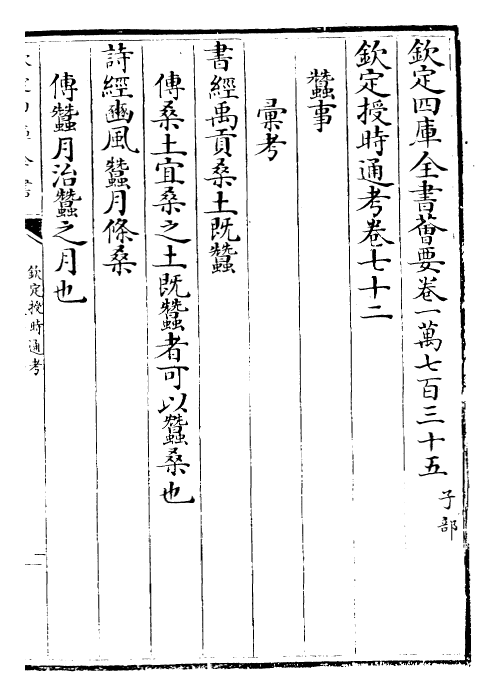 欽定四庫全書薈要卷一萬七百三十五 子部
欽定授時通考卷七十二
蠶事
彙考
書經禹貢桑土既蠶
傳桑土宜桑之土既蠶者可以蠶桑也
詩經豳風蠶月條桑
傳蠶月治蠶之月也
欽定授時通考